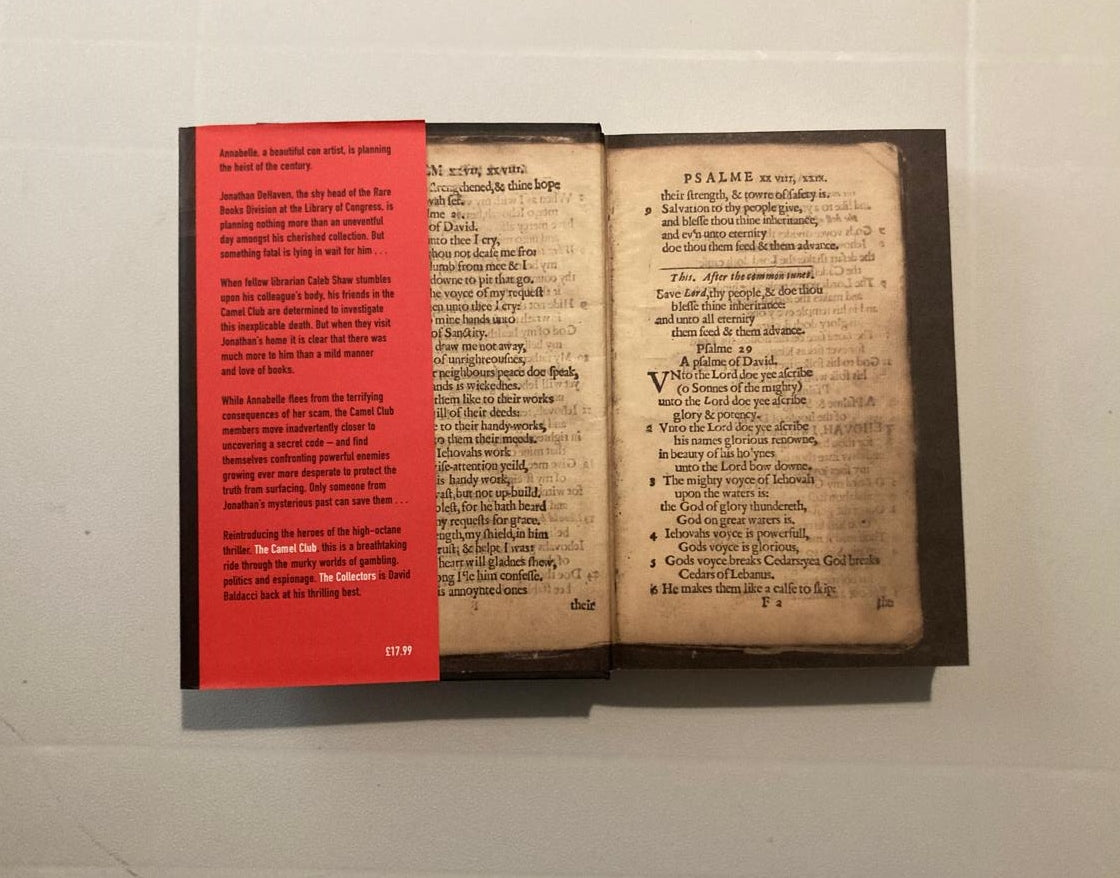 Annabelle, a beautiful con artist, is planning
the heist of the century.
Jonathan DeHaven, the shy head of the Rare
Books Division at the Library of Congress, is
planning nothing more than an uneventful
day amongst his cherished collection. But
something fatal is lying in wait for him . . .
When fellow librarian Caleb Shaw stumbles
upon his colleague's body, his friends in the
Camel Club are determined to investigate
this inexplicable death. But when they visit
Jonathan's home it is clear that there was
much more to him than a mild manner
and love of books.
While Annabelle flees from the terrifying
consequences of her scam, the Camel Club
members move inadvertently closer to
uncovering a secret code – and find
themselves confronting powerful enemies
growing ever more desperate to protect the
truth from surfacing. Only someone from
Jonathan's mysterious past can save them . . .
Reintroducing the heroes of the high-octane
thriller, The Camel Club this is a breathtaking
ride through the murky worlds of gambling,
politics and espionage. The Collectors is David
Baldacci back at his thrilling best.
£17.99
xxvij, xxviii.
& thine hope
of David.
I cry,
thou not deafe me fro:
from mee & I
downe to pit that go.
voyce of my request
unto thee I cry:
mine hands unto
of Sanctity.
draw me not away,
of unrighteousnes,
neighbours peace doe speak,
is wickednes.
them like to their works
ill of their deeds:
to their handy-works,
them their meeds.
Iehovahs work
attention yeild,
is handy work,
but not up-build,
for he hath heard
my requests for grace.
my shield, in him
& helpt I was:
heart will gladnes shew,
him confesse.
annoynted ones
their
PSALME xx viii, xxix.
their strength, & towre of safety is.
9 Salvation to thy people give,
and blesse thou thine inheritance,
and ev'n unto eternity
doe thou them feed & them advance.
This. After the common tunes.
Save Lord, thy people, & doe thou
blesse thine inheritance:
and unto all eternity
them feed & them advance.
Psalme 29
A psalme of David.
VNto the Lord doe yee ascribe
(o Sonnes of the mighty)
unto the Lord doe yee ascribe
glory & potency.
2 Vnto the Lord doe yee ascribe
his names glorious renowne,
in beauty of his ho'ynes
unto the Lord bow downe.
3 The mighty voyce of Iehovah
upon the waters is:
the God of glory thundereth,
God on great waters is.
4 Iehovahs voyce is powerfull,
Gods voyce is glorious,
5 Gods voyce breaks Cedars: yea God breaks
Cedars of Lebanus.
6 He makes them like a calfe to skip:
F 2
the